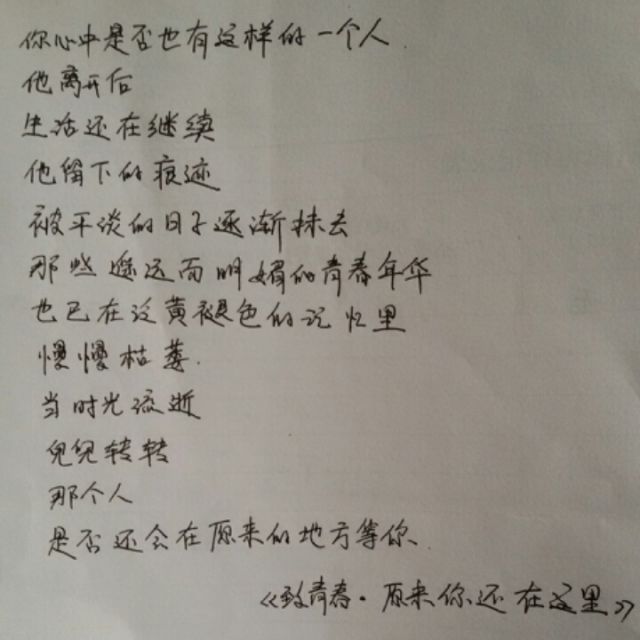 你心中是否也有这样的一个人
他离开后
生活还在继续
他留下的痕迹
被平谈的日子逐渐抹去
那些遥远而明媚的青春年华
也已在泛黄褪色的记忆里
慢慢枯萎.
当时光流逝
兜兜转转
那个人
是否还会在原来的地方等你、
《致青春·原来你还在这里》